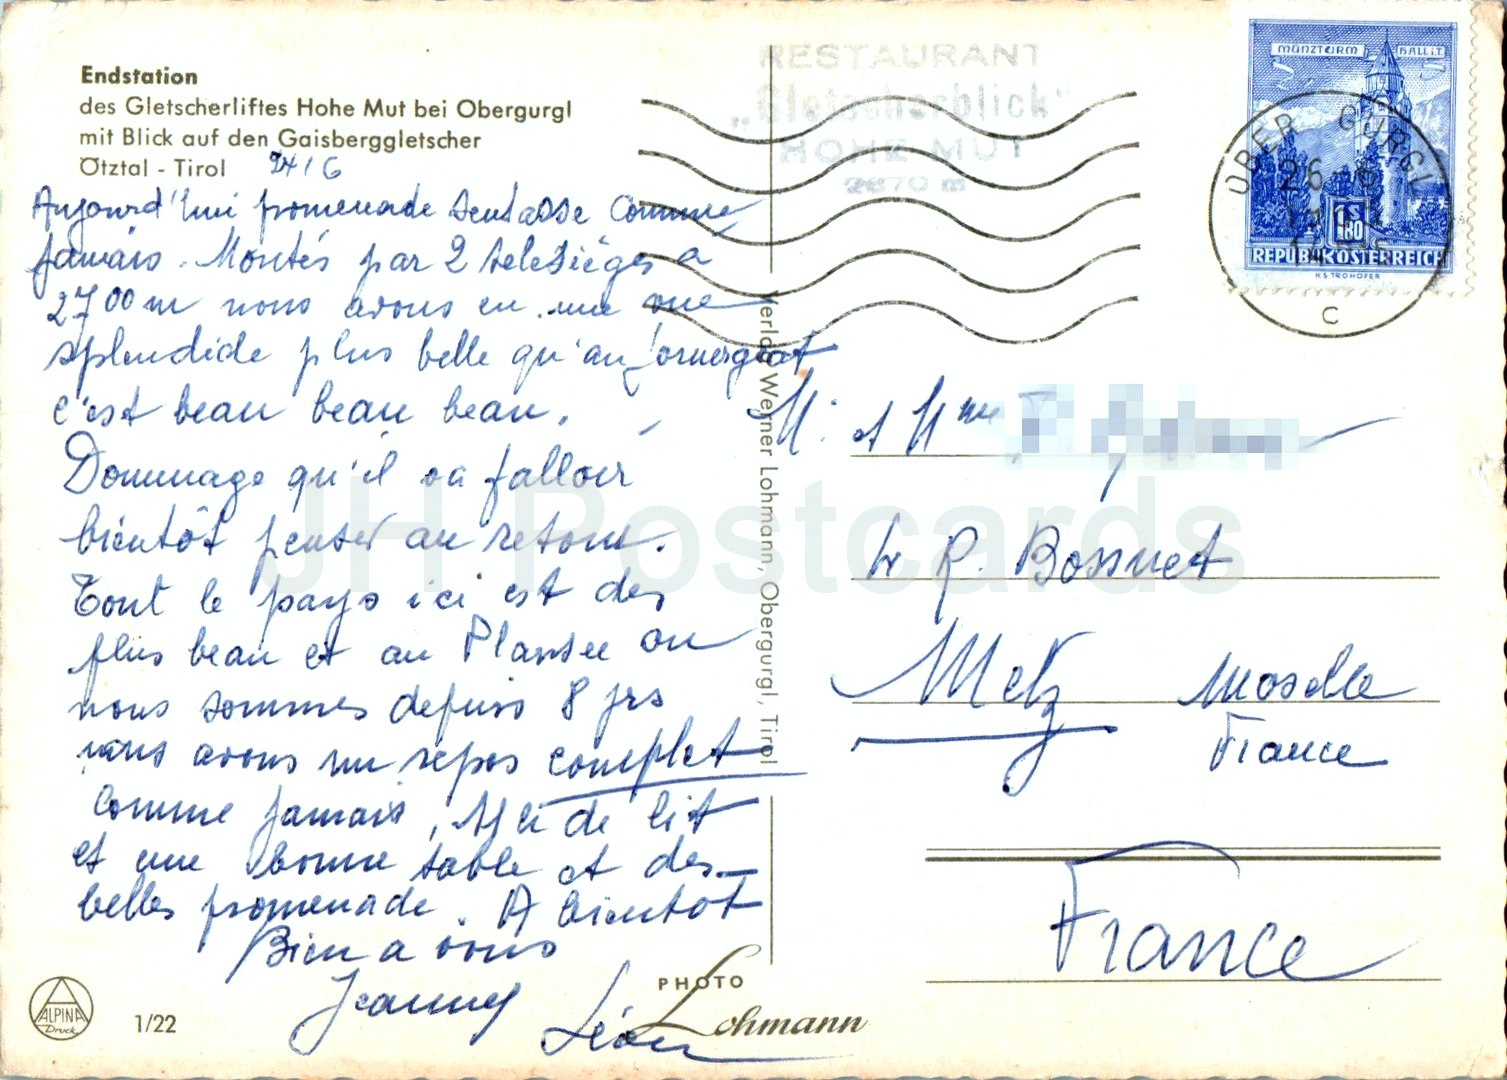 Endstation
des Gletscherliftes Hohe Mut bei Obergurgl
mit Blick auf den Gaisberggletscher
Ötztal - Tirol
24/6
Aujourd'hui promenade sentasse comme
jamais. Montés par 2 telesièges à
2700 m nous avons eu une vue
splendide plus belle qu'au Gornergrat
c'est beau beau beau.
Dommage qu'il va falloir
bientôt penser au retour.
Tout le pays ici est des
plus beau et au Plansee ou
nous sommes depuis 8 jrs
nous avons un repos complet
comme jamais, de lit
et une bonne table et des
belles promenade. A bientôt
Bien a vous
Jeanny
Léon
ALPINA
Druck
1/22
PHOTO
Lohmann
Verlag Werner Lohmann, Obergurgl, Tirol
RESTAURANT
„Gletscherblick"
HOHE MUT
2670 m
MÜNZTURM HALL I.T.
S 1.80
REPUBLIK ÖSTERREICH
H. STROHOFER
OBER GURGL
26
C
M. et Mme
R. Bossuet
Metz Moselle
France
France
JH Postcards